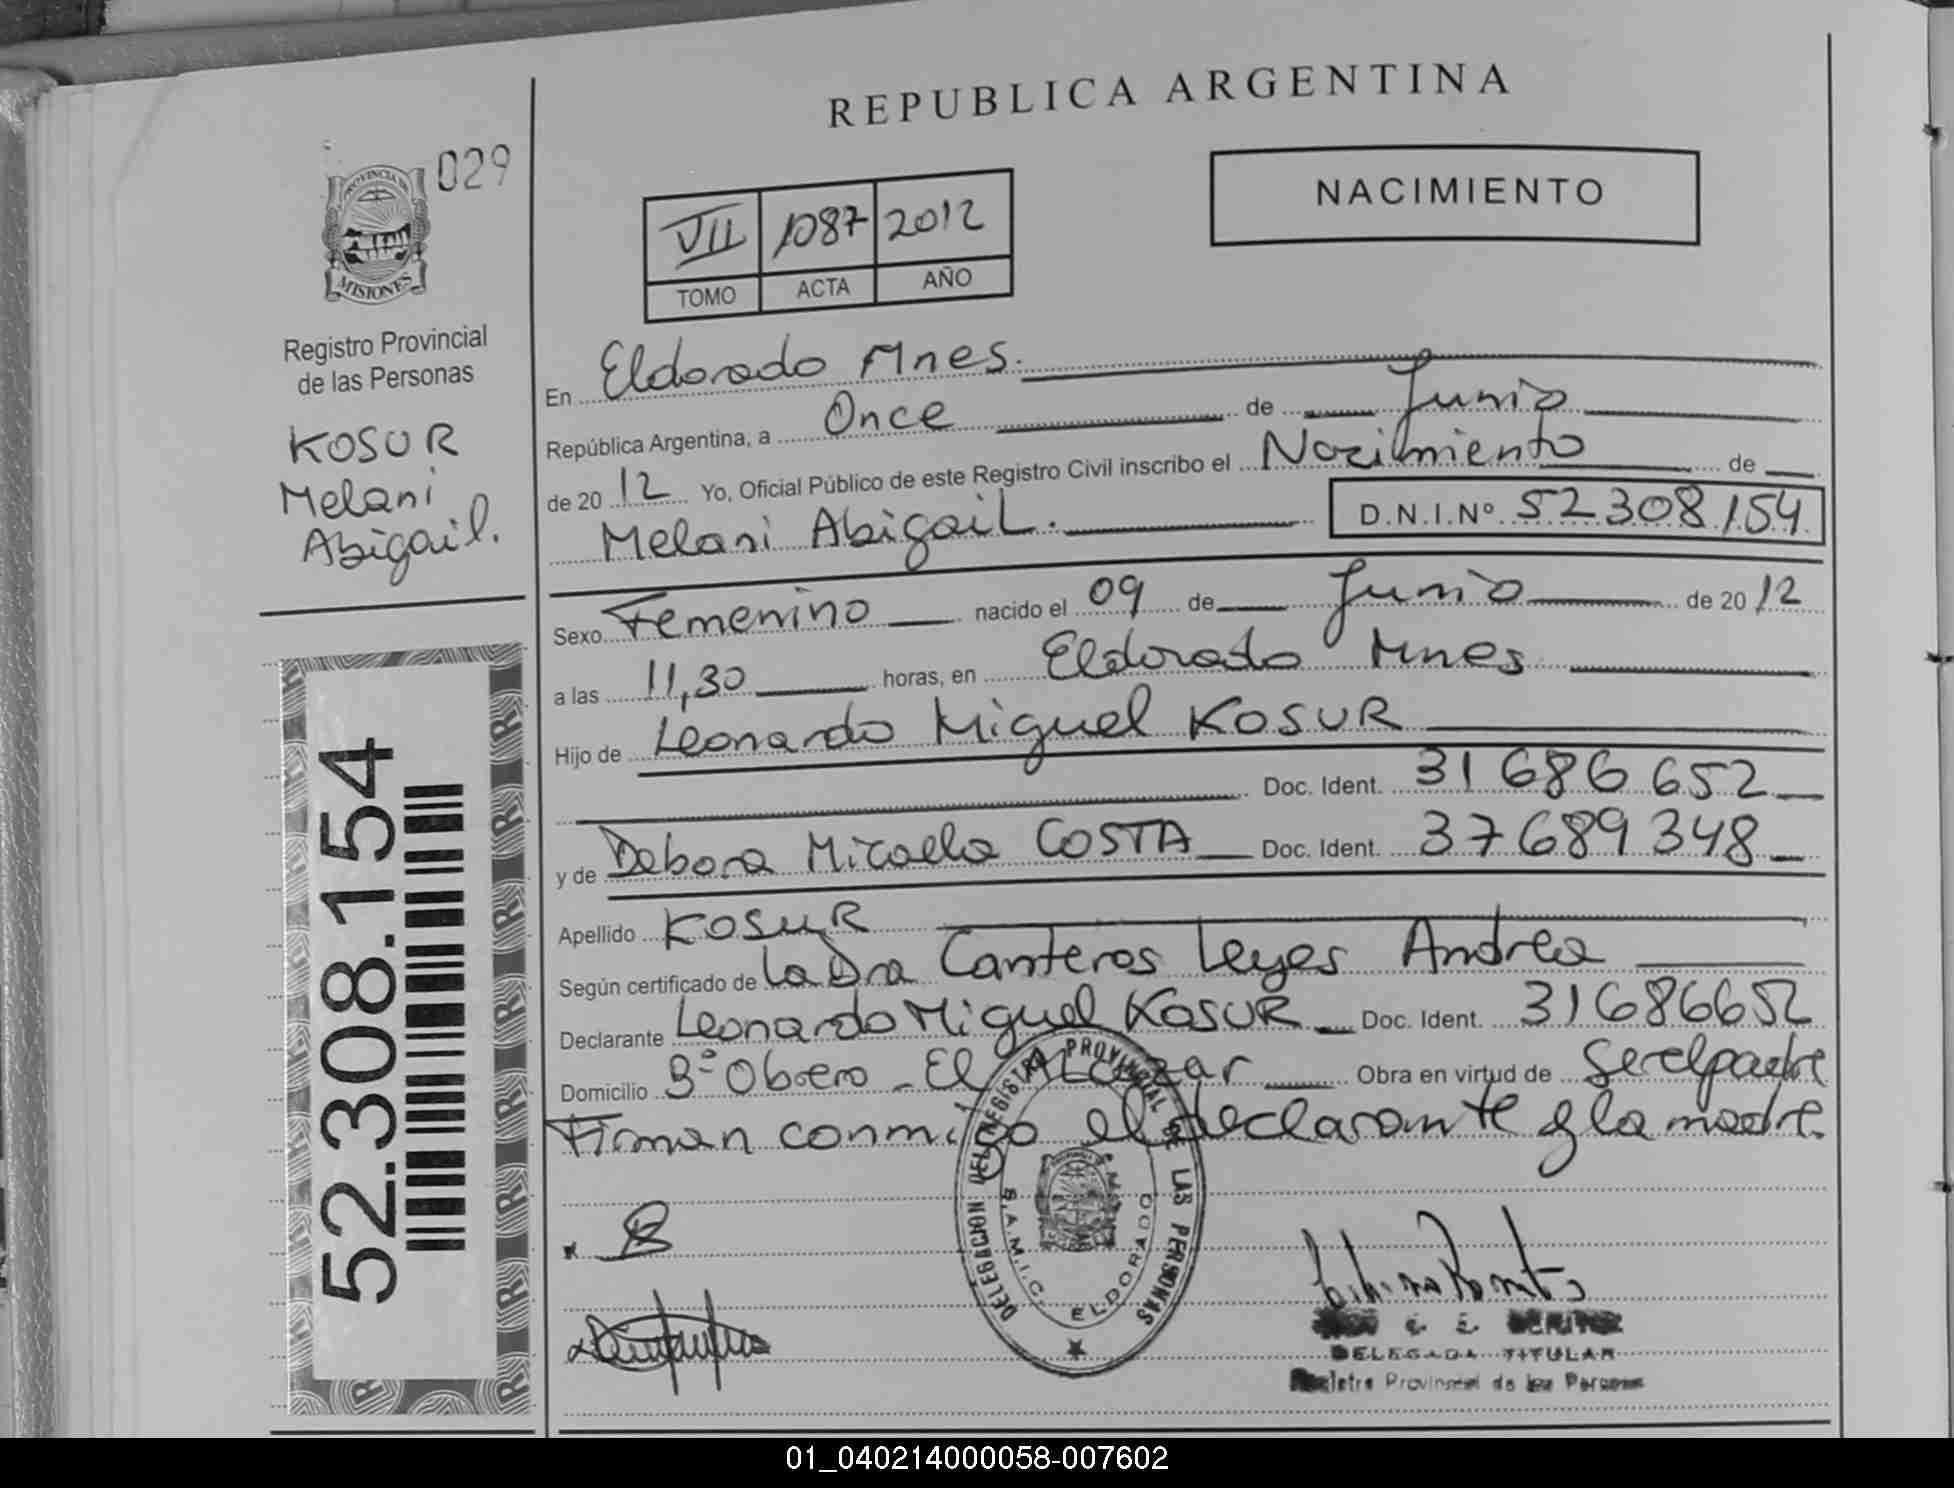 REPUBLICA ARGENTINA
029
PROVINCIA DE
MISIONES
Registro Provincial
de las Personas
KOSUR
Melani
Abigail.
52.308.154
NACIMIENTO
VII 1087 2012
TOMO ACTA AÑO
En Eldorado Mnes.
República Argentina, a Once de Junio
de 20 12 Yo, Oficial Público de este Registro Civil inscribo el Nacimiento de
Melani Abigail. D.N.I.Nº 52 308 154
Sexo Femenino nacido el 09 de Junio de 20 12
a las 11,30 horas, en Eldorado Mnes
Hijo de Leonardo Miguel KOSUR
Doc. Ident. 31 686 652
y de Debora Micaela COSTA Doc. Ident. 37 689 348
Apellido KOSUR
Según certificado de La Dra Canteros Leyes Andrea
Declarante Leonardo Miguel KOSUR Doc. Ident. 31686652
Domicilio Bº Obrero - El Alcazar Obra en virtud de Ser el padre
Firman conmigo el declarante y la madre.
DELEGACION DEL REGISTRO PROVINCIAL DE LAS PERSONAS
B.A.M.I.C. ELDORADO
DELEGADA TITULAR
Provincial de las Personas
01_040214000058-007602